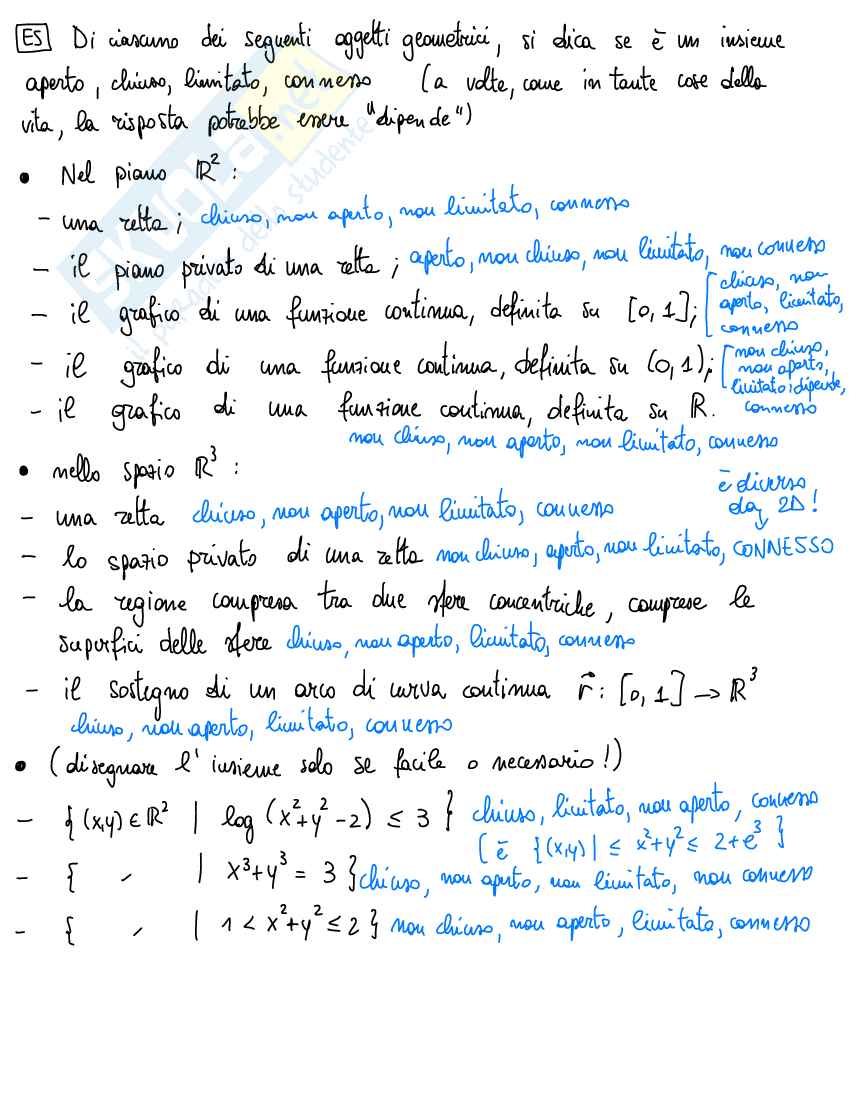 ES Di ciascuno dei seguenti oggetti geometrici, si dica se è un insieme
aperto, chiuso, limitato, connesso (a volte, come in tante cose della
vita, la risposta potrebbe essere "dipende")
• Nel piano ℝ² :
- una retta; chiuso, non aperto, non limitato, connesso
- il piano privato di una retta; aperto, non chiuso, non limitato, non connesso
- il grafico di una funzione continua, definita su [0,1]; [chiuso, non
aperto, limitato,
connesso
- il grafico di una funzione continua, definita su (0,1); [non chiuso,
non aperto,
limitato: dipende,
connesso
- il grafico di una funzione continua, definita su ℝ.
non chiuso, non aperto, non limitato, connesso
• nello spazio ℝ³ :
- una retta chiuso, non aperto, non limitato, connesso
è diverso
da 2D!
- lo spazio privato di una retta non chiuso, aperto, non limitato, CONNESSO
- la regione compresa tra due sfere concentriche, comprese le
superfici delle sfere chiuso, non aperto, limitato, connesso
- il sostegno di un arco di curva continua r⃗ : [0,1] → ℝ³
chiuso, non aperto, limitato, connesso
• (disegnare l'insieme solo se facile o necessario!)
- {(x,y) ∈ ℝ² | log (x²+y²-2) ≤ 3 } chiuso, limitato, non aperto, connesso
[è {(x,y) | ≤ x²+y² ≤ 2+e³ }
- { " | x³+y³ = 3 } chiuso, non aperto, non limitato, non connesso
- { " | 1 < x²+y² ≤ 2 } non chiuso, non aperto, limitato, connesso
SKUOLA.net
il paradiso dello studente